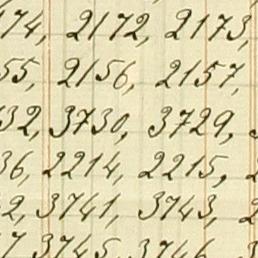 74, 2172, 2173,
55, 2156, 2157,
32, 3730, 3729,
36, 2214, 2215, 2
2, 3741, 3743, 2
7 3745 3746